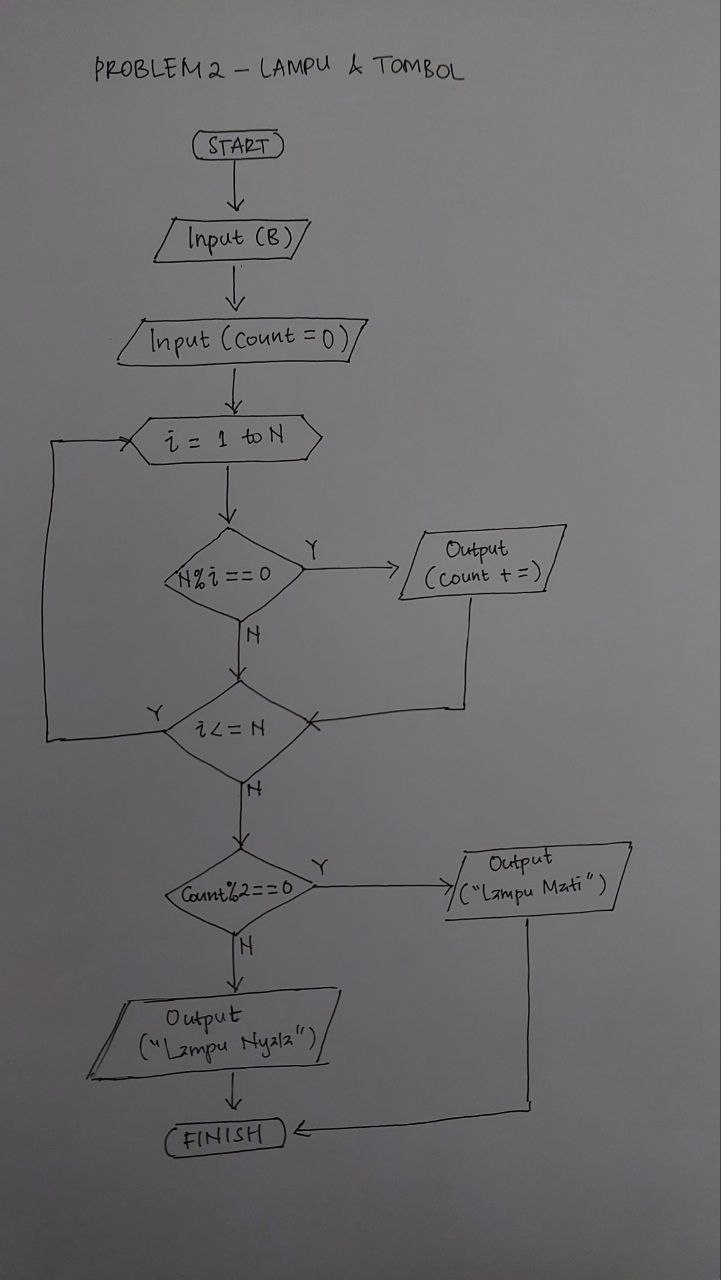 PROBLEM 2 - LAMPU & TOMBOL
START
Input (B)
Input (count = 0)
i = 1 to N
N%i == 0
Y
Output
(count + =)
N
i <= N
Y
N
Count%2 == 0
Y
Output
("Lampu Mati")
N
Output
("Lampu Nyala")
FINISH